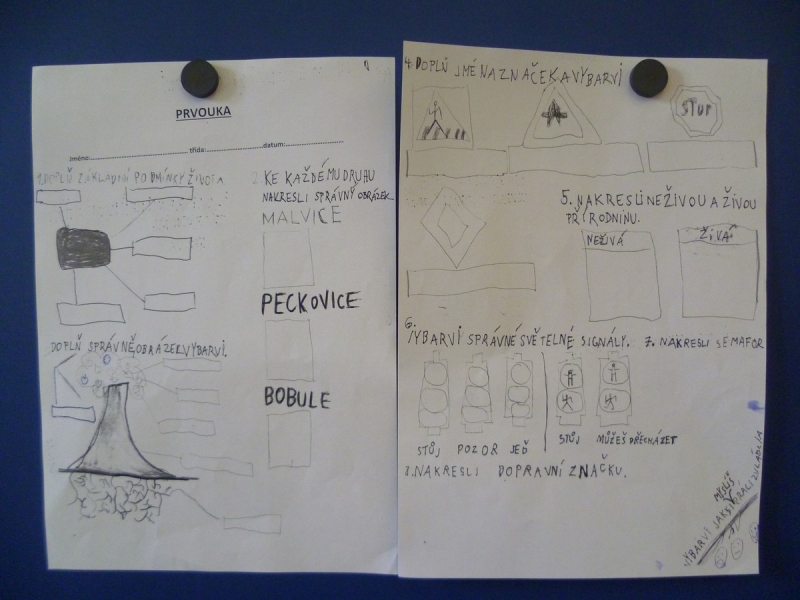 PRVOUKA
Jméno: třída: datum:
1. DOPLŇ ZÁKLADNÍ PODMÍNKY ŽIVOTA
2. KE KAŽDÉMU DRUHU
NAKRESLI SPRÁVNÝ OBRÁZEK.
MALVICE
PECKOVICE
BOBULE
DOPLŇ SPRÁVNĚ OBRÁZEK VYBARVI.
4. DOPLŇ JMÉNA ZNAČEK A VYBARVI
STOP
5. NAKRESLI NEŽIVOU A ŽIVOU
PŘÍRODNINU.
NEŽIVÁ
ŽIVÁ
6.
VYBARVI SPRÁVNÉ SVĚTELNÉ SIGNÁLY.
7. NAKRESLI SEMAFOR
STŮJ POZOR JEĎ
STŮJ MŮŽEŠ PŘECHÁZET
8. NAKRESLI DOPRAVNÍ ZNAČKU.
VYBARVI JAK SI